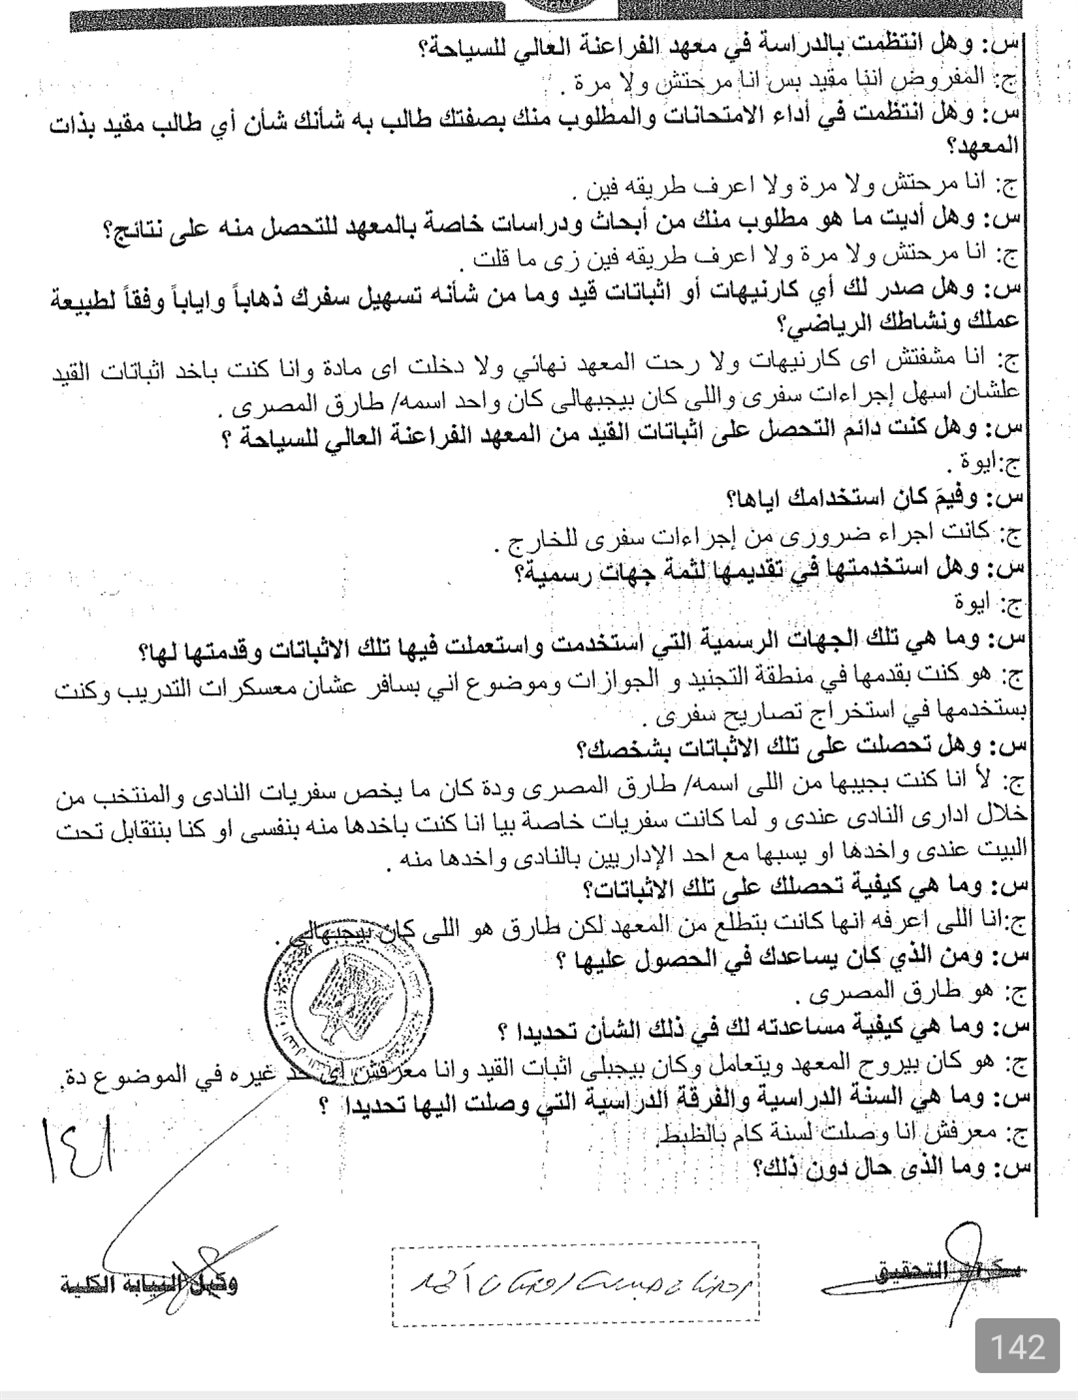 س: وهل انتظمت بالدراسة في معهد الفراعنة العالي للسياحة؟
ج: المفروض اننا مقيد بس انا مرحتش ولا مرة .
س: وهل انتظمت في أداء الامتحانات والمطلوب منك بصفتك طالب به شأنك شأن أي طالب مقيد بذات
المعهد؟
ج: انا مرحتش ولا مرة ولا اعرف طريقه فين .
س: وهل أديت ما هو مطلوب منك من أبحاث ودراسات خاصة بالمعهد للتحصل منه على نتائج؟
ج: انا مرحتش ولا مرة ولا اعرف طريقه فين زى ما قلت .
س: وهل صدر لك أي كارنيهات أو اثباتات قيد وما من شأنه تسهيل سفرك ذهاباً واياباً وفقاً لطبيعة
عملك ونشاطك الرياضي؟
ج: انا مشفتش اى كارنيهات ولا رحت المعهد نهائي ولا دخلت اى مادة وانا كنت باخد اثباتات القيد
علشان اسهل إجراءات سفرى واللى كان بيجبهالى كان واحد اسمه/ طارق المصرى .
س: وهل كنت دائم التحصل على اثباتات القيد من المعهد الفراعنة العالي للسياحة ؟
ج:ايوة .
س: وفيمَ كان استخدامك اياها؟
ج: كانت اجراء ضرورى من إجراءات سفرى للخارج .
س: وهل استخدمتها في تقديمها لثمة جهات رسمية؟
ج: ايوة
س: وما هي تلك الجهات الرسمية التي استخدمت واستعملت فيها تلك الاثباتات وقدمتها لها؟
ج: هو كنت بقدمها في منطقة التجنيد و الجوازات وموضوع اني بسافر عشان معسكرات التدريب وكنت
بستخدمها في استخراج تصاريح سفرى .
س: وهل تحصلت على تلك الاثباتات بشخصك؟
ج: لأ انا كنت بجيبها من اللى اسمه/ طارق المصرى ودة كان ما يخص سفريات النادى والمنتخب من
خلال ادارى النادى عندى و لما كانت سفريات خاصة بيا انا كنت باخدها منه بنفسى او كنا بنتقابل تحت
البيت عندى واخدها او يسبها مع احد الإداريين بالنادى واخدها منه .
س: وما هي كيفية تحصلك على تلك الاثباتات؟
ج:انا اللى اعرفه انها كانت بتطلع من المعهد لكن طارق هو اللى كان بيجبهالى .
س: ومن الذي كان يساعدك في الحصول عليها ؟
ج: هو طارق المصرى .
س: وما هي كيفية مساعدته لك في ذلك الشأن تحديدا ؟
ج: هو كان بيروح المعهد ويتعامل وكان بيجبلى اثبات القيد وانا معرفش اى حد غيره في الموضوع دة.
س: وما هي السنة الدراسية والفرقة الدراسية التي وصلت اليها تحديدا ؟
ج: معرفش انا وصلت لسنة كام بالظبط.
س: وما الذى حال دون ذلك؟
١٤١
سكرتير التحقيق
وكيل النيابة الكلية
142